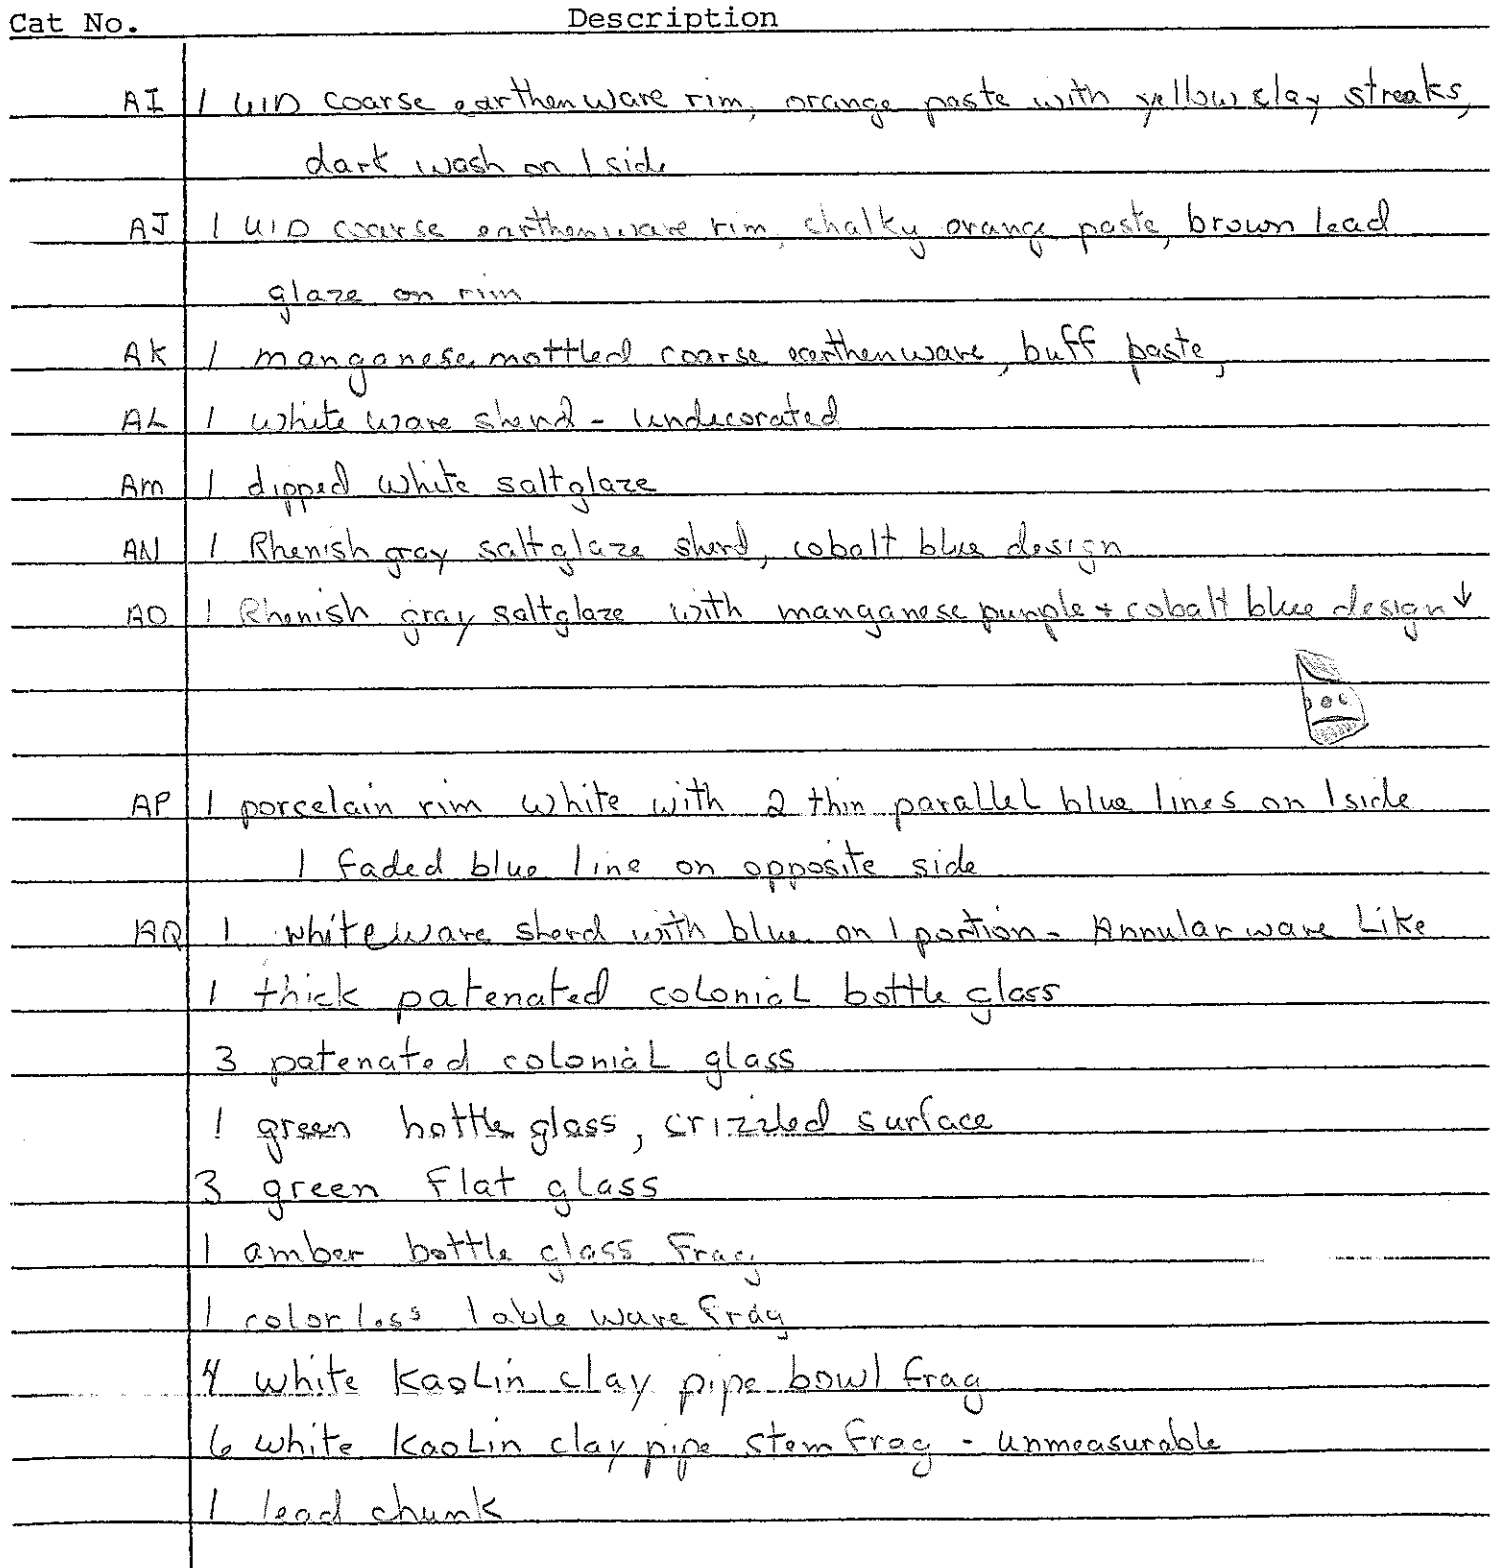 Cat No. Description
AI 1 UID coarse earthenware rim, orange paste with yellow clay streaks,
dark wash on 1 side
AJ 1 UID coarse earthenware rim, chalky orange paste, brown lead
glaze on rim
AK 1 manganese mottled coarse earthenware, buff paste,
AL 1 white ware sherd - undecorated
Am 1 dipped white saltglaze
AN 1 Rhenish gray saltglaze sherd, cobalt blue design
AO 1 Rhenish gray saltglaze with manganese purple + cobalt blue design ↓
AP 1 porcelain rim white with 2 thin parallel blue lines on 1 side
1 faded blue line on opposite side
AQ 1 whiteware sherd with blue on 1 portion - Annular ware Like
1 thick patenated colonial bottle glass
3 patenated colonial glass
1 green bottle glass, crizzled surface
3 green Flat glass
1 amber bottle glass Frag
1 colorless table ware frag
4 white KaoLin clay pipe bowl frag
6 white KaoLin clay pipe stem frag - unmeasurable
1 lead chunk